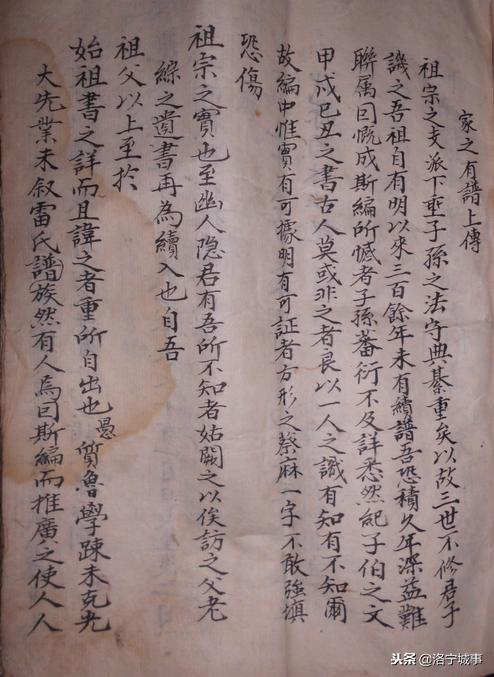 家之有譜上傳
祖宗之支派下垂子孫之法守典綦重矣以故三世不修君子
譏之吾祖自有明以來三百餘年未有續譜吾恐積久年深益難
聯属因慨成斯編所憾者子孫蕃衍不及詳悉然紀子伯之文
甲戍巳丑之書古人莫或非之者良以一人之識有知有不知爾
故編中惟實有可據明有可証者方形之蔡麻一字不敢強填
恐傷
祖宗之實也至幽人隐君有吾所不知者姑闕之以俟訪之父老
綜之遺書再為續入也自吾
祖父以上至於
始祖書之詳而且諱之者重所自出也愚質魯學踈未克光
大先業未叙雷氏譜族然有人焉因斯編而推廣之使人人
头条 @洛宁城事